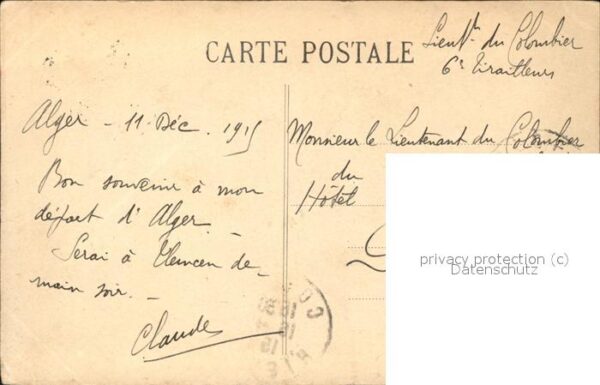 CARTE POSTALE
Lieut. du Colombier
6e Tirailleurs
Alger - 11 Déc. 1915
Bon souvenir à mon
départ d'Alger -
Serai à Tlemcen de-
main soir. -
Claude
Monsieur le Lieutenant du Colombier
du
Hôtel
privacy protection (c)
Datenschutz